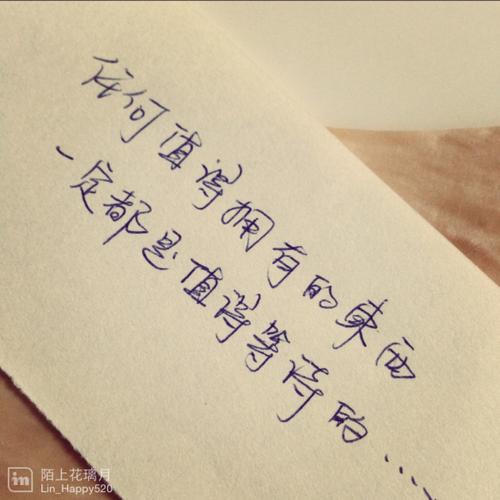 任何值得拥有的東西
一定都是值得等待的……
陌上花璃月
Lin_Happy520